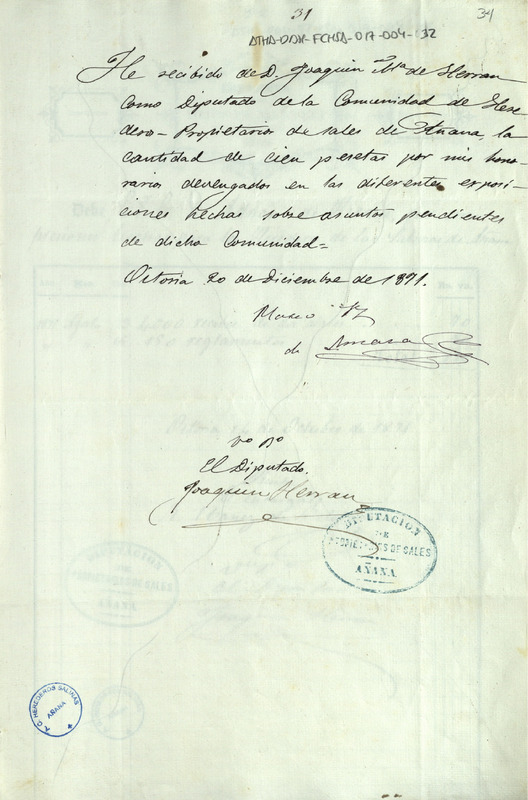 31
34
ATHA-DAH-FCHSA-017-004-32
He recibido de D. Joaquin Mª de Herran
como Diputado de la Comunidad de Here-
dero-Propietarios de sales de Añana, la
cantidad de cien pesetas por mis hono-
rarios devengados en las diferentes exposi-
ciones hechas sobre asuntos pendientes
de dicha Comunidad=
Vitoria 20 de Diciembre de 1871.
de
Vº Bº
El Diputado.
Joaquin Herran
DIPUTACION
DE
PROPIETARIOS DE SALES
AÑANA
HEREDEROS SALINAS
AÑANA